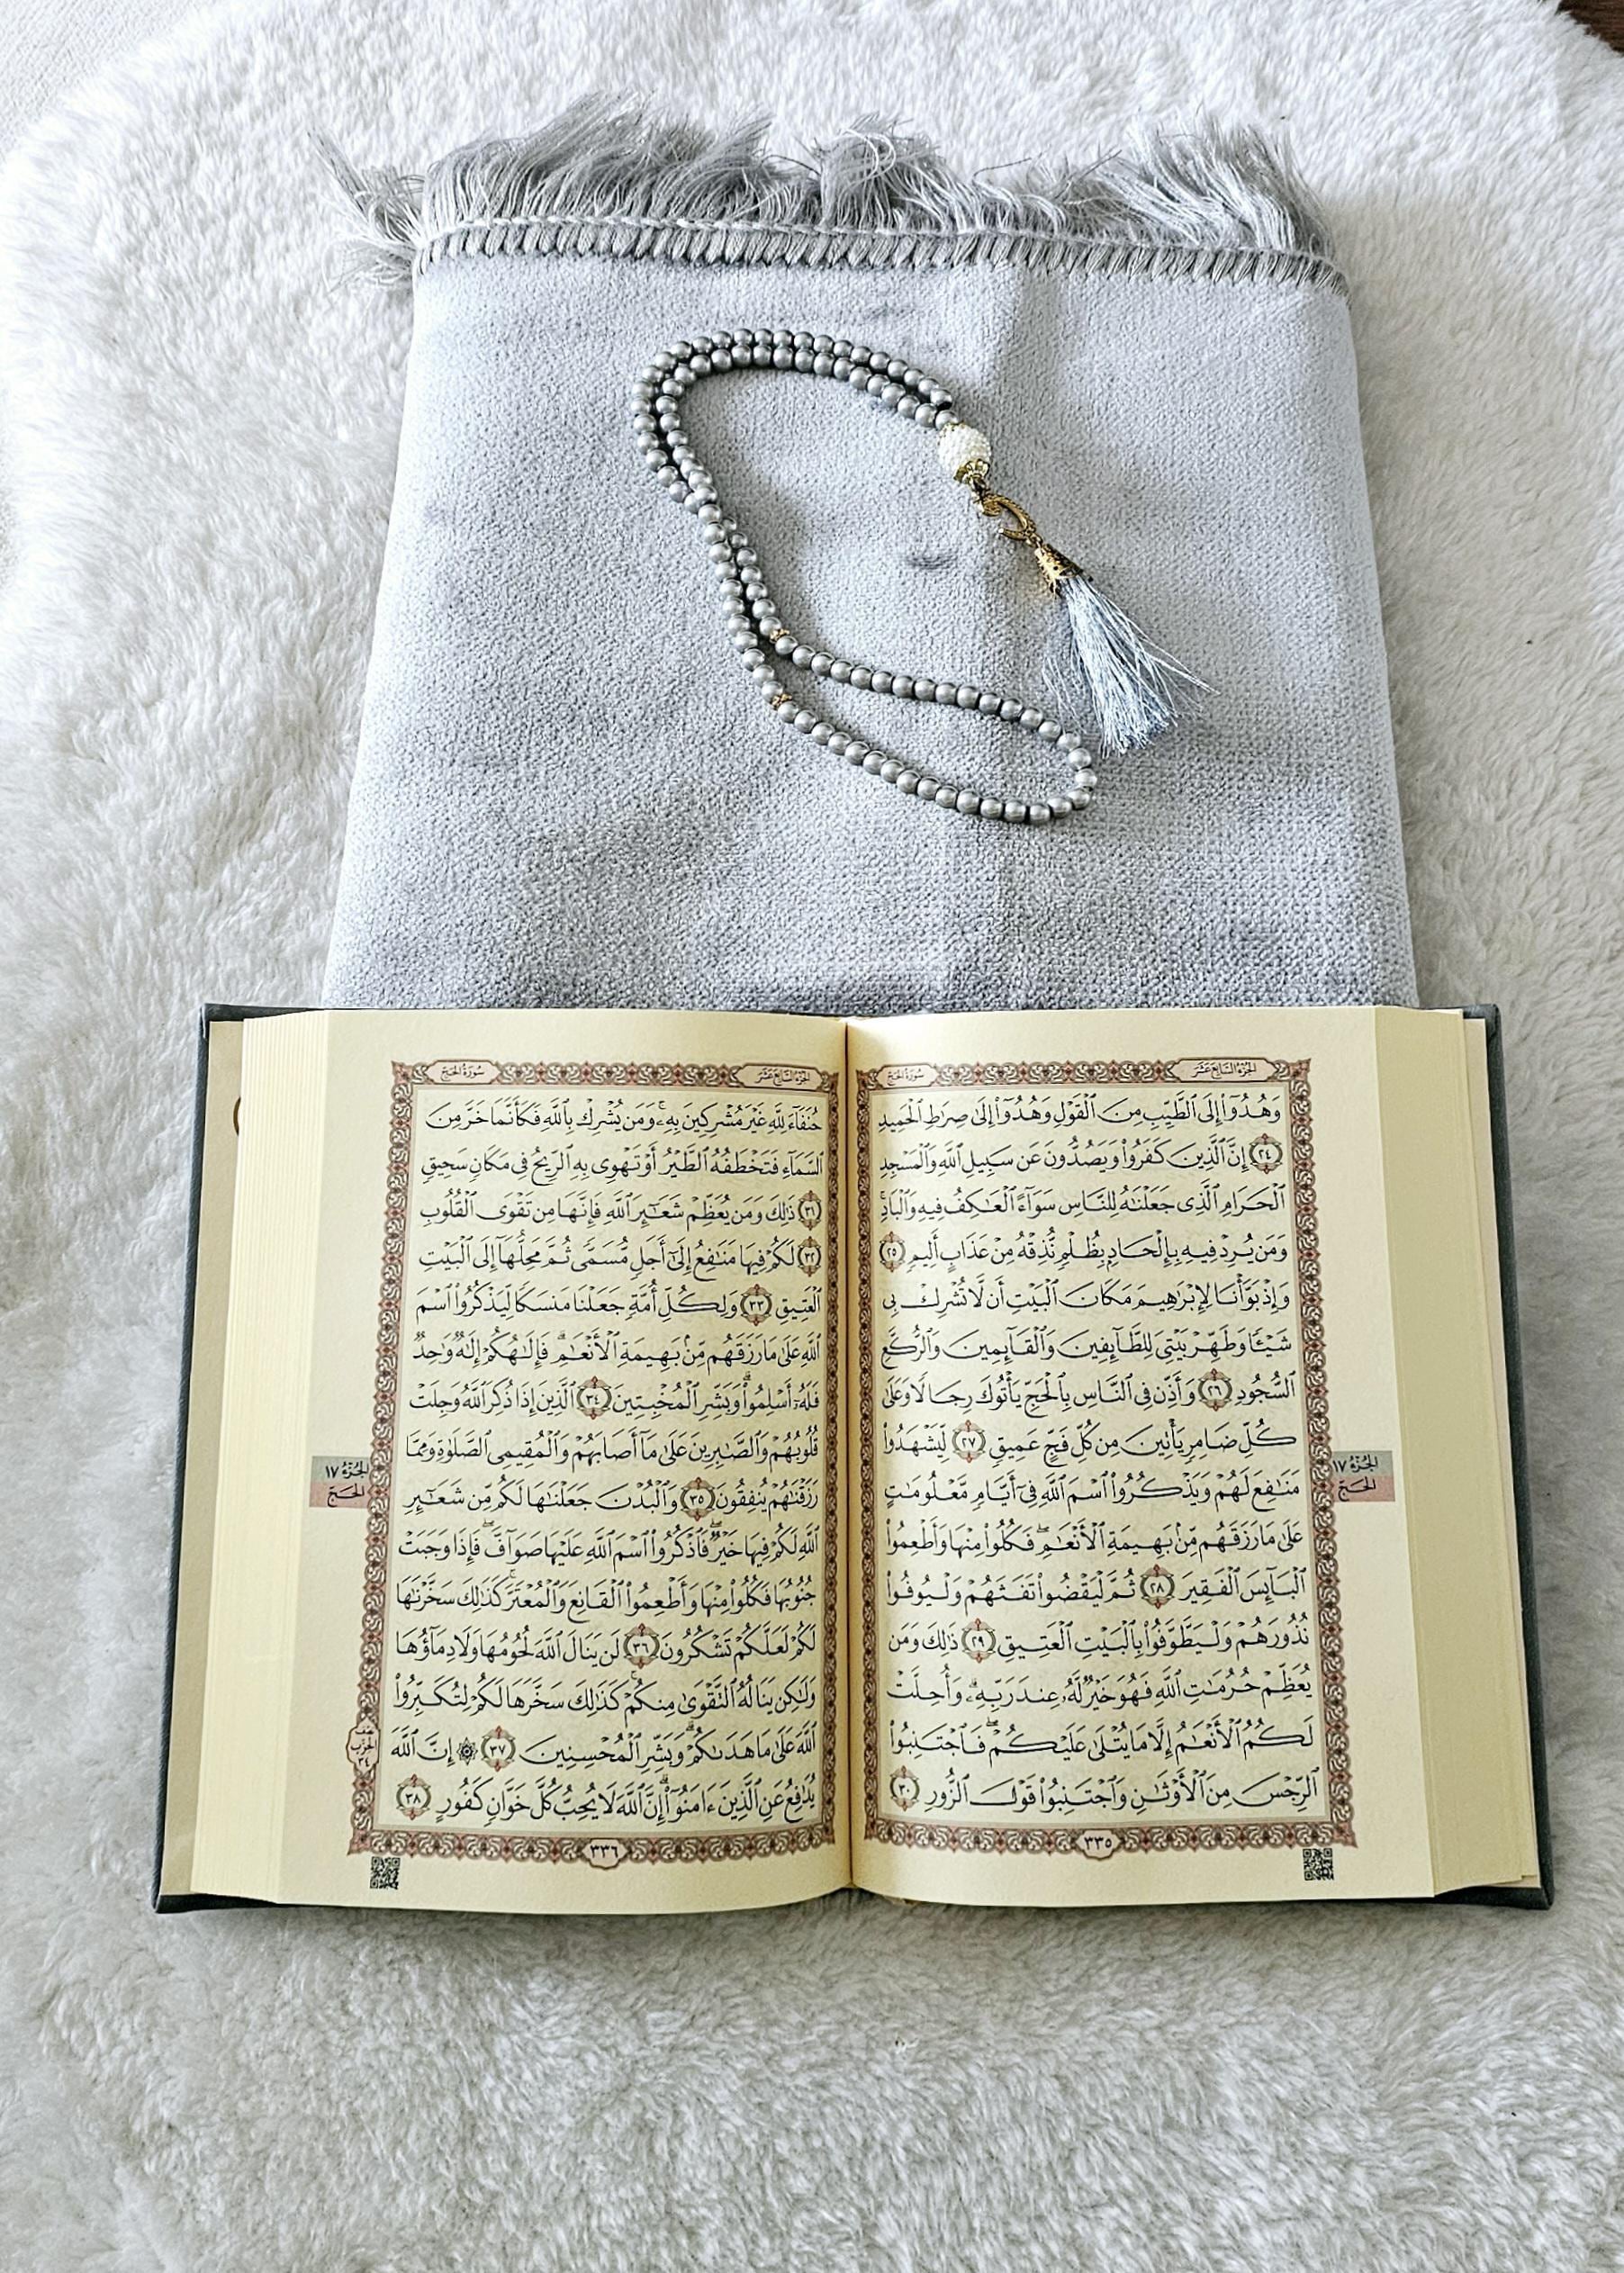 الجزء السابع عشر
سورة الحج
وَهُدُوٓاْ إِلَى ٱلطَّيِّبِ مِنَ ٱلۡقَوۡلِ وَهُدُوٓاْ إِلَىٰ صِرَٰطِ ٱلۡحَمِيدِ
٢٤ إِنَّ ٱلَّذِينَ كَفَرُواْ وَيَصُدُّونَ عَن سَبِيلِ ٱللَّهِ وَٱلۡمَسۡجِدِ
ٱلۡحَرَامِ ٱلَّذِي جَعَلۡنَٰهُ لِلنَّاسِ سَوَآءً ٱلۡعَٰكِفُ فِيهِ وَٱلۡبَادِۚ
وَمَن يُرِدۡ فِيهِ بِإِلۡحَادِۭ بِظُلۡمٖ نُّذِقۡهُ مِنۡ عَذَابٍ أَلِيمٖ ٢٥
وَإِذۡ بَوَّأۡنَا لِإِبۡرَٰهِيمَ مَكَانَ ٱلۡبَيۡتِ أَن لَّا تُشۡرِكۡ بِي
شَيۡـٔٗا وَطَهِّرۡ بَيۡتِيَ لِلطَّآئِفِينَ وَٱلۡقَآئِمِينَ وَٱلرُّكَّعِ
ٱلسُّجُودِ ٢٦ وَأَذِّن فِي ٱلنَّاسِ بِٱلۡحَجِّ يَأۡتُوكَ رِجَالٗا وَعَلَىٰ
كُلِّ ضَامِرٖ يَأۡتِينَ مِن كُلِّ فَجٍّ عَمِيقٖ ٢٧ لِّيَشۡهَدُواْ
مَنَٰفِعَ لَهُمۡ وَيَذۡكُرُواْ ٱسۡمَ ٱللَّهِ فِيٓ أَيَّامٖ مَّعۡلُومَٰتٍ
عَلَىٰ مَا رَزَقَهُم مِّنۢ بَهِيمَةِ ٱلۡأَنۡعَٰمِۖ فَكُلُواْ مِنۡهَا وَأَطۡعِمُواْ
ٱلۡبَآئِسَ ٱلۡفَقِيرَ ٢٨ ثُمَّ لۡيَقۡضُواْ تَفَثَهُمۡ وَلۡيُوفُواْ
نُذُورَهُمۡ وَلۡيَطَّوَّفُواْ بِٱلۡبَيۡتِ ٱلۡعَتِيقِ ٢٩ ذَٰلِكَۖ وَمَن
يُعَظِّمۡ حُرُمَٰتِ ٱللَّهِ فَهُوَ خَيۡرٞ لَّهُۥ عِندَ رَبِّهِۦۗ وَأُحِلَّتۡ
لَكُمُ ٱلۡأَنۡعَٰمُ إِلَّا مَا يُتۡلَىٰ عَلَيۡكُمۡۖ فَٱجۡتَنِبُواْ
ٱلرِّجۡسَ مِنَ ٱلۡأَوۡثَٰنِ وَٱجۡتَنِبُواْ قَوۡلَ ٱلزُّورِ ٣٠
٣٣٥
الجزء ١٧
الحج
الجزء السابع عشر
سورة الحج
حُنَفَآءَ لِلَّهِ غَيۡرَ مُشۡرِكِينَ بِهِۦۚ وَمَن يُشۡرِكۡ بِٱللَّهِ فَكَأَنَّمَا خَرَّ مِنَ
ٱلسَّمَآءِ فَتَخۡطَفُهُ ٱلطَّيۡرُ أَوۡ تَهۡوِي بِهِ ٱلرِّيحُ فِي مَكَانٖ سَحِيقٖ
٣١ ذَٰلِكَۖ وَمَن يُعَظِّمۡ شَعَٰٓئِرَ ٱللَّهِ فَإِنَّهَا مِن تَقۡوَى ٱلۡقُلُوبِ
٣٢ لَكُمۡ فِيهَا مَنَٰفِعُ إِلَىٰٓ أَجَلٖ مُّسَمّٗى ثُمَّ مَحِلُّهَآ إِلَى ٱلۡبَيۡتِ
ٱلۡعَتِيقِ ٣٣ وَلِكُلِّ أُمَّةٖ جَعَلۡنَا مَنسَكٗا لِّيَذۡكُرُواْ ٱسۡمَ
ٱللَّهِ عَلَىٰ مَا رَزَقَهُم مِّنۢ بَهِيمَةِ ٱلۡأَنۡعَٰمِۗ فَإِلَٰهُكُمۡ إِلَٰهٞ وَٰحِدٞ
فَلَهُۥٓ أَسۡلِمُواْۗ وَبَشِّرِ ٱلۡمُخۡبِتِينَ ٣٤ ٱلَّذِينَ إِذَا ذُكِرَ ٱللَّهُ وَجِلَتۡ
قُلُوبُهُمۡ وَٱلصَّٰبِرِينَ عَلَىٰ مَآ أَصَابَهُمۡ وَٱلۡمُقِيمِي ٱلصَّلَوٰةِ وَمِمَّا
رَزَقۡنَٰهُمۡ يُنفِقُونَ ٣٥ وَٱلۡبُدۡنَ جَعَلۡنَٰهَا لَكُم مِّن شَعَٰٓئِرِ
ٱللَّهِ لَكُمۡ فِيهَا خَيۡرٞۖ فَٱذۡكُرُواْ ٱسۡمَ ٱللَّهِ عَلَيۡهَا صَوَآفَّۖ فَإِذَا وَجَبَتۡ
جُنُوبُهَا فَكُلُواْ مِنۡهَا وَأَطۡعِمُواْ ٱلۡقَانِعَ وَٱلۡمُعۡتَرَّۚ كَذَٰلِكَ سَخَّرۡنَٰهَا
لَكُمۡ لَعَلَّكُمۡ تَشۡكُرُونَ ٣٦ لَن يَنَالَ ٱللَّهَ لُحُومُهَا وَلَا دِمَآؤُهَا
وَلَٰكِن يَنَالُهُ ٱلتَّقۡوَىٰ مِنكُمۡۚ كَذَٰلِكَ سَخَّرَهَا لَكُمۡ لِتُكَبِّرُواْ
ٱللَّهَ عَلَىٰ مَا هَدَىٰكُمۡۗ وَبَشِّرِ ٱلۡمُحۡسِنِينَ ٣٧ ۞ إِنَّ ٱللَّهَ
يُدَٰفِعُ عَنِ ٱلَّذِينَ ءَامَنُوٓاْۗ إِنَّ ٱللَّهَ لَا يُحِبُّ كُلَّ خَوَّانٖ كَفُورٍ ٣٨
٣٣٦
الجزء ١٧
الحج
نصف
الحزب
٣٤